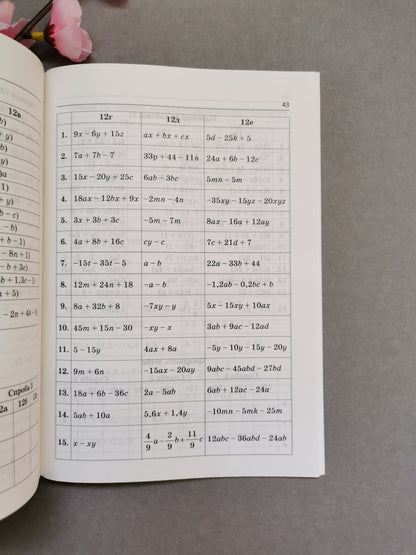 43
12г 12д 12е
1. 9x – 6y + 15z ax + bx + cx 5d – 25k + 5
2. 7a + 7b – 7 33p + 44 – 11n 24a + 6b – 12c
3. 15x – 20y + 25c 6ab – 3bc 5mn – 5m
4. 18ax – 12bx + 9x –2mn – 4n –35xy – 15yz – 20xyz
5. 3x + 3b + 3c –5m – 7m 8ax – 16a + 12ay
6. 4a + 8b + 16c cy – c 7c + 21d + 7
7. –15t – 35t – 5 a – b 22a – 33b + 44
8. 12m + 24n + 18 –a – b –1,2ab – 0,2bc + b
9. 8a + 32b + 8 –7xy – y 5x – 15xy + 10ax
10. 45m + 15n – 30 –xy – x 3ab + 9ac – 12ad
11. 5 – 15y 4ax + 8a –5y – 10y – 15y – 20y
12. 9m + 6n –15ax – 20ay 9abc – 45abd – 27bd
13. 18a + 6b – 36c 2a – 5ab 6ab + 12ac – 24a
14. 5ab + 10a 5,6x + 1,4y –10mn – 5mk – 25m
15. x – xy 4/9 a – 2/9 b + 11/9 c 12abc – 36abd – 24ab
12в
– b + 3c)
b + 1,3c – 1)
a + 5)
– 2n + 4k –
Спроба 3
12д